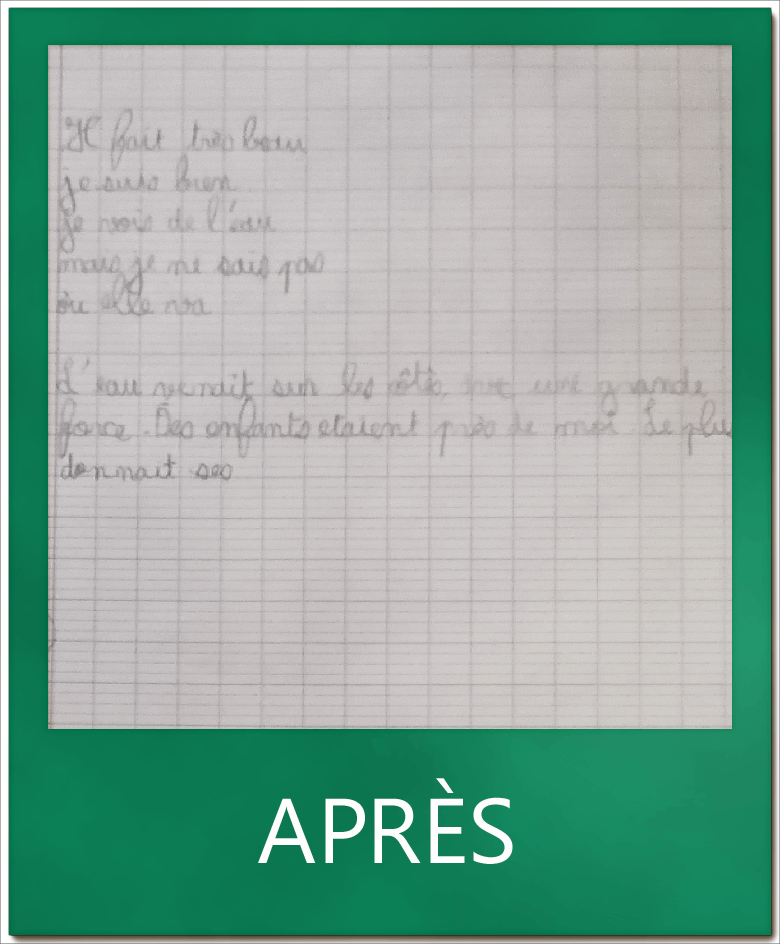 Il fait très beau
je suis bien
je vois de l'eau
mais je ne sais pas
où elle va
L'eau venait sur les côtés, avec une grande
force. Des enfants etaient près de moi. Le plus
donnait ses
APRÈS